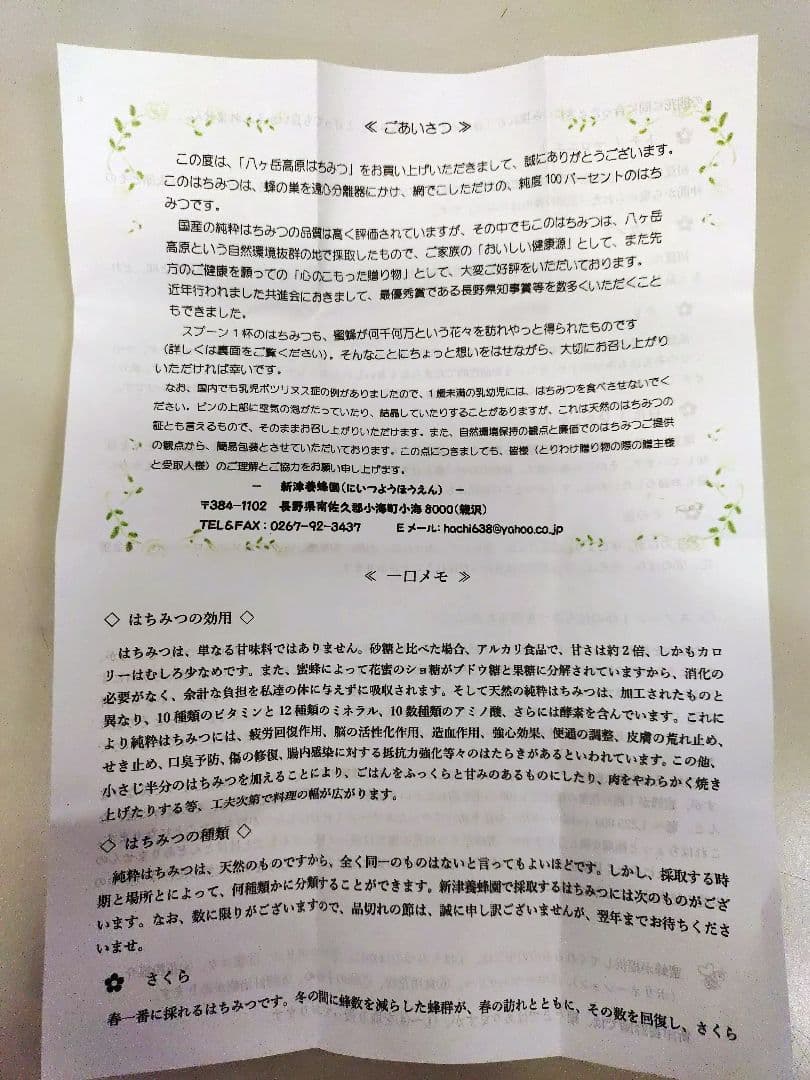 ≪ ごあいさつ ≫
この度は、「八ヶ岳高原はちみつ」をお買い上げいただきまして、誠にありがとうございます。
このはちみつは、蜂の巣を遠心分離器にかけ、網でこしただけの、純度100パーセントのはち
みつです。
国産の純粋はちみつの品質は高く評価されていますが、その中でもこのはちみつは、八ヶ岳
高原という自然環境抜群の地で採取したもので、ご家族の「おいしい健康源」として、また先
方のご健康を願っての「心のこもった贈り物」として、大変ご好評をいただいております。
近年行われました共進会におきまして、最優秀賞である長野県知事賞等を数多くいただくこと
もできました。
スプーン1杯のはちみつも、蜜蜂が何千何万という花々を訪れやっと得られたものです
(詳しくは裏面をご覧ください)。そんなことにちょっと想いをはせながら、大切にお召し上がり
いただければ幸いです。
なお、国内でも乳児ボツリヌス症の例がありましたので、1歳未満の乳幼児には、はちみつを食べさせないでく
ださい。ビンの上部に空気の泡がたっていたり、結晶していたりすることがありますが、これは天然のはちみつの
証とも言えるもので、そのままお召し上がりいただけます。また、自然環境保持の観点と廉価でのはちみつご提供
の観点から、簡易包装とさせていただいております。この点につきましても、皆様(とりわけ贈り物の際の贈主様
と受取人様)のご理解とご協力をお願い申し上げます。
－ 新津養蜂園(にいつようほうえん) －
〒384-1102 長野県南佐久郡小海町小海8000(親沢)
TEL&FAX:0267-92-3437 Eメール:hachi638@yahoo.co.jp
≪ 一口メモ ≫
◇ はちみつの効用 ◇
はちみつは、単なる甘味料ではありません。砂糖と比べた場合、アルカリ食品で、甘さは約2倍、しかもカロ
リーはむしろ少なめです。また、蜜蜂によって花蜜のショ糖がブドウ糖と果糖に分解されていますから、消化の
必要がなく、余計な負担を私達の体に与えずに吸収されます。そして天然の純粋はちみつは、加工されたものと
異なり、10種類のビタミンと12種類のミネラル、10数種類のアミノ酸、さらには酵素を含んでいます。これに
より純粋はちみつには、疲労回復作用、脳の活性化作用、造血作用、強心効果、便通の調整、皮膚の荒れ止め、
せき止め、口臭予防、傷の修復、腸内感染に対する抵抗力強化等々のはたらきがあるといわれています。この他、
小さじ半分のはちみつを加えることにより、ごはんをふっくらと甘みのあるものにしたり、肉をやわらかく焼き
上げたりする等、工夫次第で料理の幅が広がります。
◇ はちみつの種類 ◇
純粋はちみつは、天然のものですから、全く同一のものはないと言ってもよいほどです。しかし、採取する時
期と場所とによって、何種類かに分類することができます。新津養蜂園で採取するはちみつには次のものがござ
います。なお、数に限りがございますので、品切れの節は、誠に申し訳ございませんが、翌年までお待ちくださ
いませ。
✿ さくら
春一番に採れるはちみつです。冬の間に蜂数を減らした蜂群が、春の訪れとともに、その数を回復し、さくら